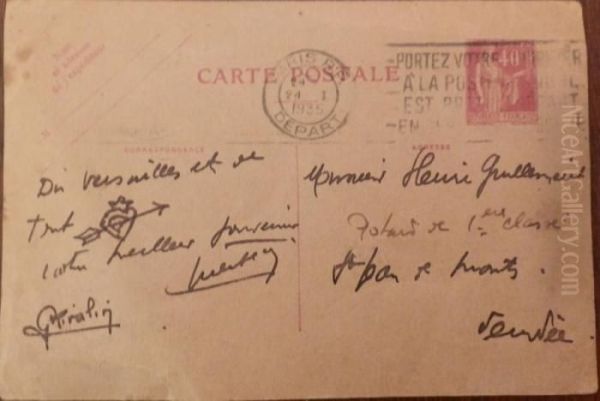 Nom
et adresse
de l'expéditeur
CARTE POSTALE
PARIS
24 I
1935
DEPART
PORTEZ VOTRE
A LA POSTE
EST
EN
40
CORRESPONDANCE
ADRESSE
Du Versailles et de
tout
votre meilleur souvenir
Monsieur Henri Guillemant
Potard de 1ère classe
St Jean de Monts.
Vendée.
NiceArtGallery.com